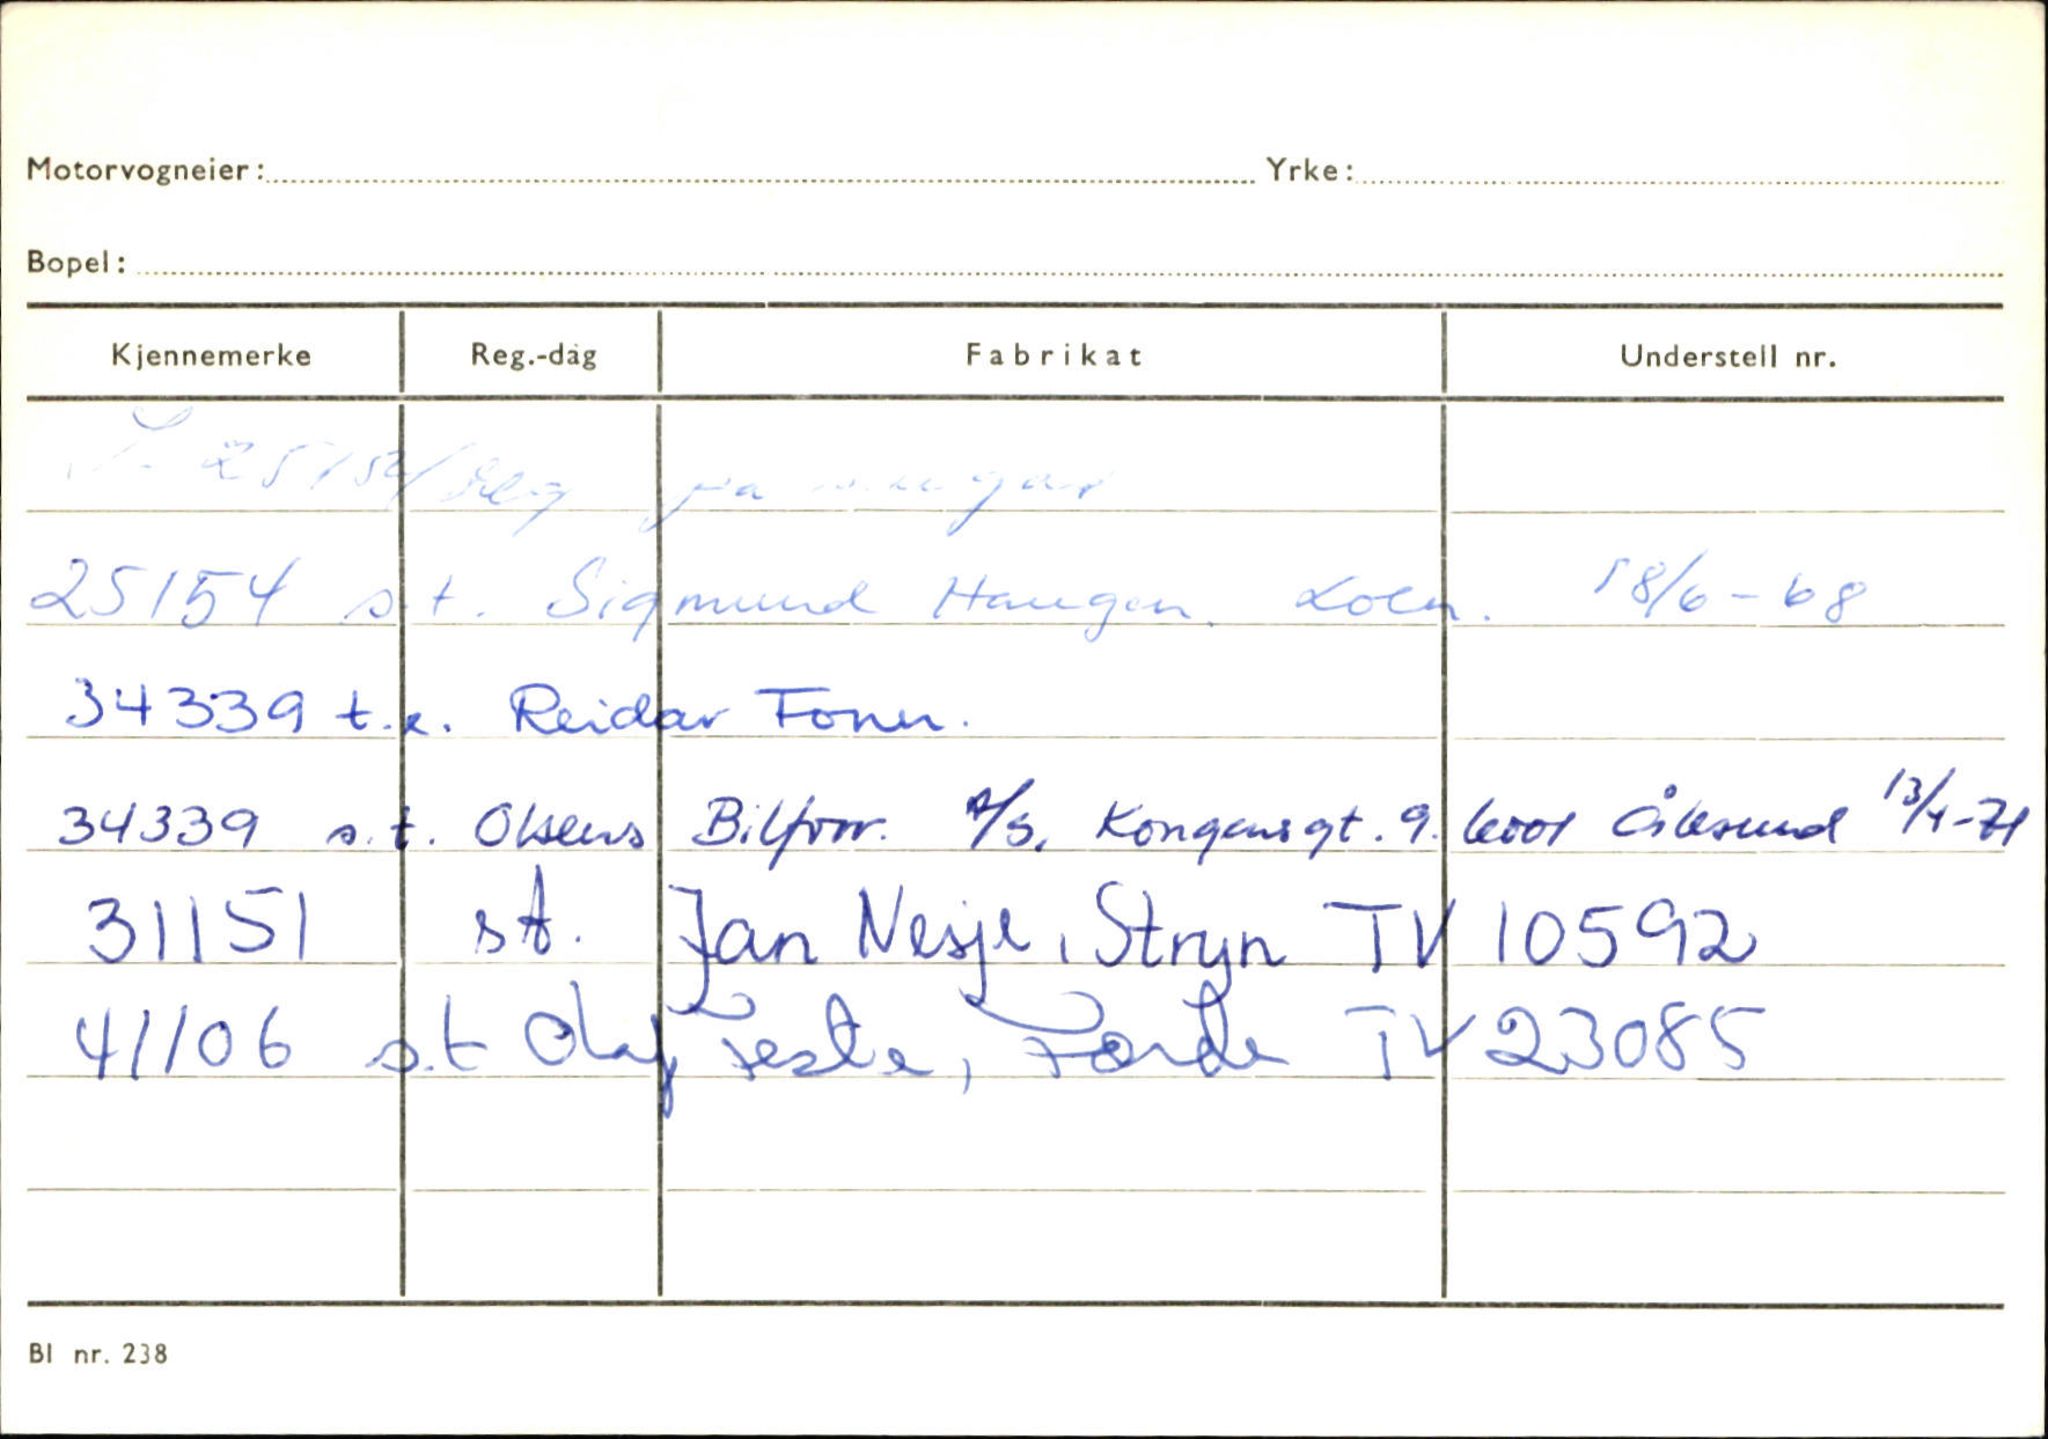 Motorvogneier: Yrke:
Bopel:
Kjennemerke Reg.-dag Fabrikat Understell nr.
25154
25154 s.t. Sigmund Haugen. Loen. 18/6-68
34339 t.e. Reidar
34339 s.t. Olsens Bilforr. A/S. Kongensgt. 9. 6001 Ålesund 13/4-71
31151 st. Jan Nesje, Stryn TV 10592
41106 s.t Olaf Feste, Førde TV 23085
Bl nr. 238